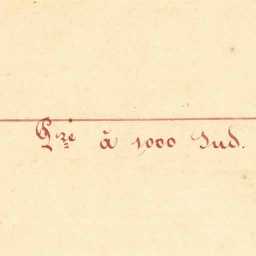 Gré à 1,000 Sud.